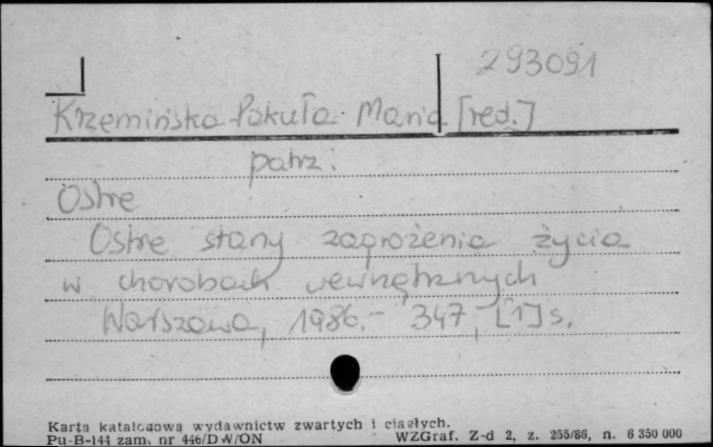 293091
Krzemińska-Pakuła Maria [red.]
patrz:
Ostre
Ostre stany zagrożenia życia
w chorobach wewnętrznych
Warszawa, 1986.- 347, [1] s.
Karta katalogowa wydawnictw zwartych i ciągłych.
Pu-B-144 zam. nr 446/DW/ON WZGraf. Z-d 2, z. 255/86, n. 6 350 000